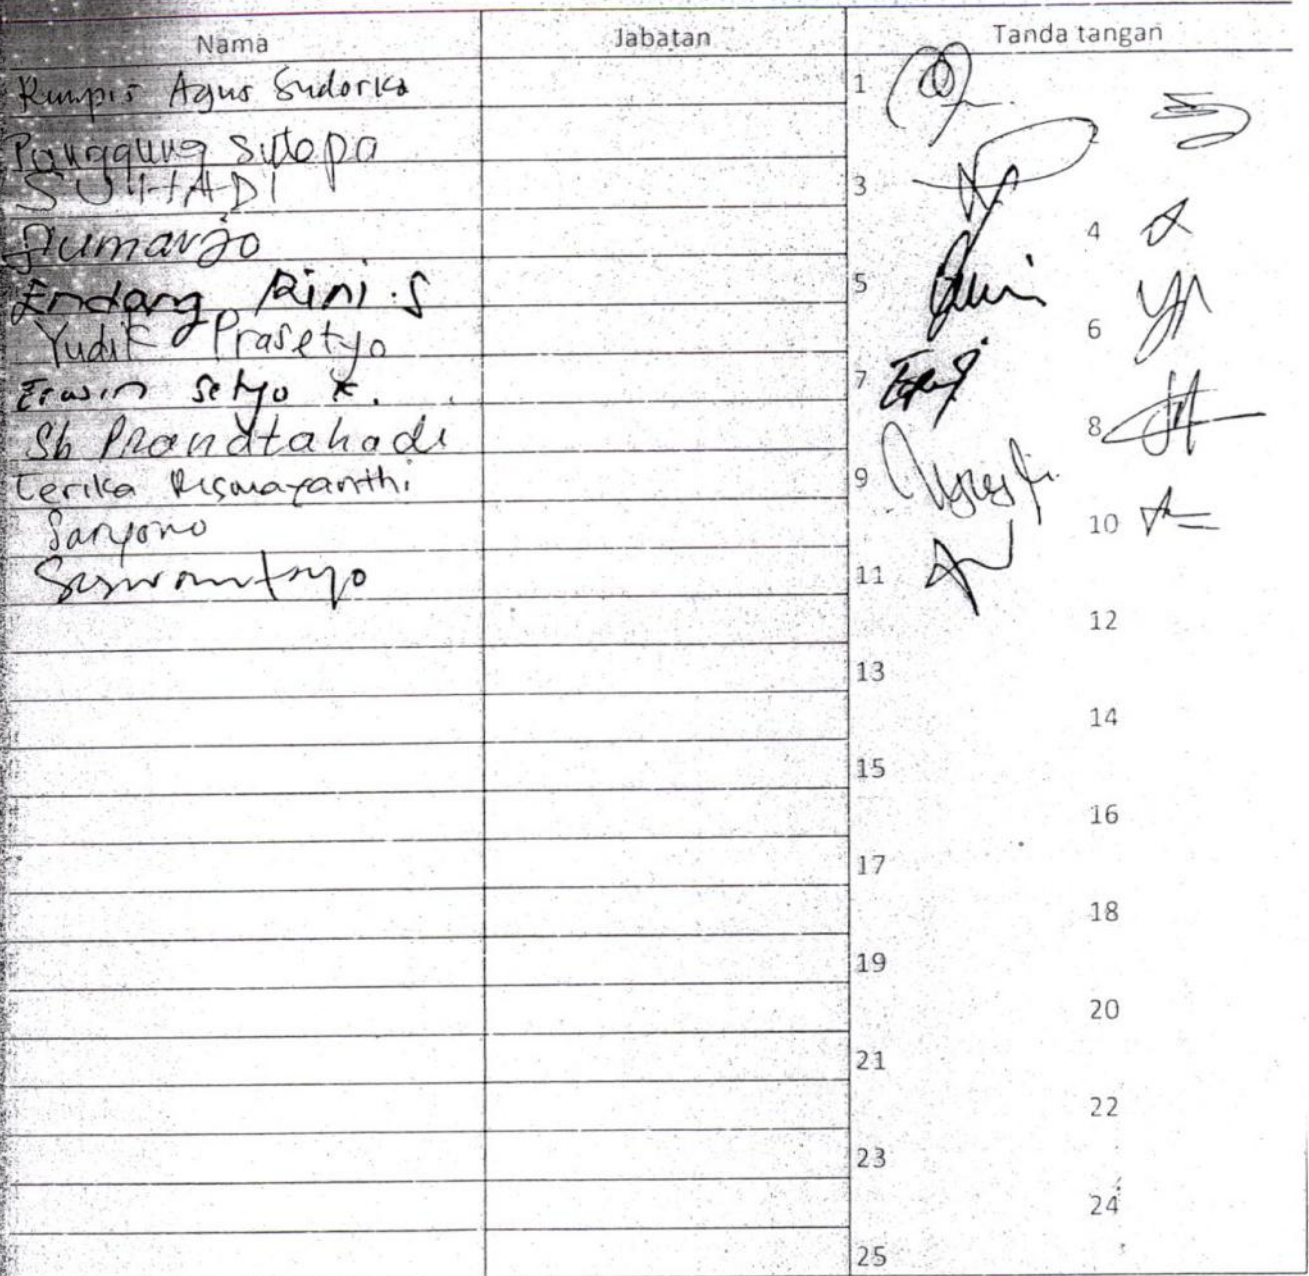 Nama Jabatan Tanda tangan
Rumpis Agus Sudorko 1
Panggung sutopo
SUHADI 3
Jumarjo 4
Endang Rini . S 5
Yudik Prasetyo 6
Erwin Setyo K. 7
Sb Pranatahadi 8
Cerika Rismayanthi 9
Saryono 10
Siswantoyo 11
12
13
14
15
16
17
18
19
20
21
22
23
24
25